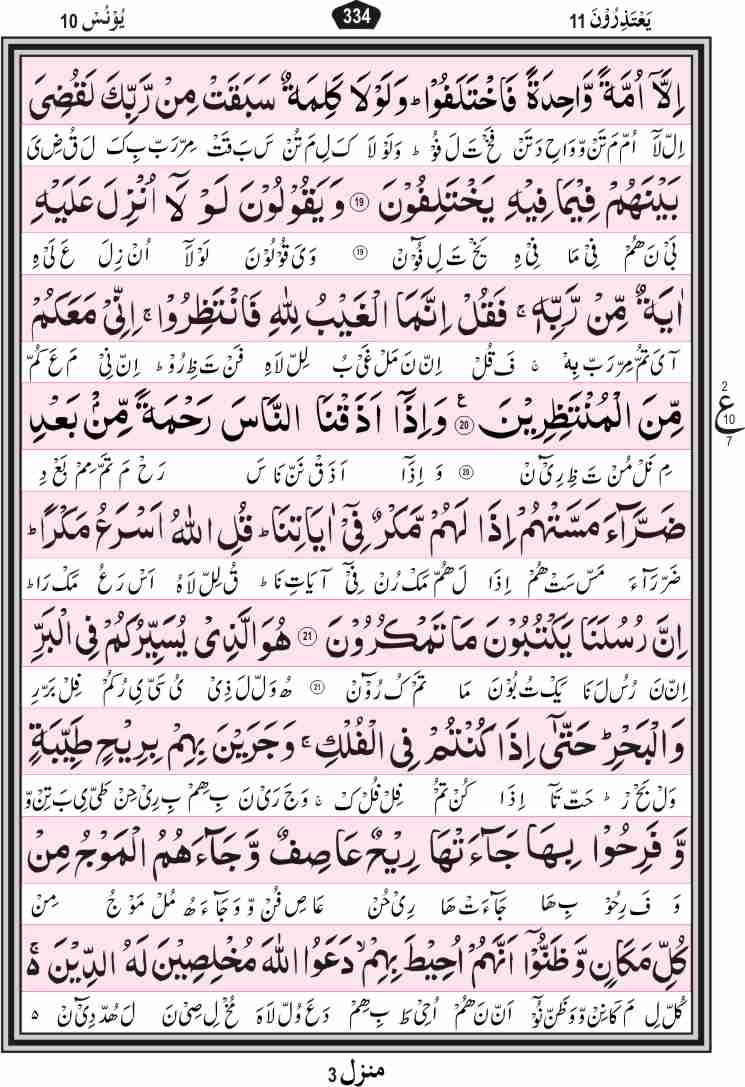 يَعْتَذِرُوْنَ 11 334 يُوْنُسْ 10
اِلَّاۤ اُمَّةً وَّاحِدَةً فَاخْتَلَفُوْا ؕ وَلَوْ لَا كَلِمَةٌ سَبَقَتْ مِنْ رَّبِّكَ لَقُضِىَ
اِلّ لَاۤ اُمّ مَ تَنْ وّ وَاحِ دَ تَنْ فَخْ تَ لَ فُوْ ؕ وَلَوْ لَا كَ لِ مَ تُنْ سَ بَ قَتْ مِرّ رَبّ بِ كَ لَ قُ ضِ ىَ
بَيْنَهُمْ فِيْمَا فِيْهِ يَخْتَلِفُوْنَ ۝19 وَ يَقُوْلُوْنَ لَوْ لَاۤ اُنْزِلَ عَلَيْهِ
بَىْ نَ هُمْ فِىْ مَا فِىْ هِ يَخْ تَ لِ فُوْٓنْ ۝19 وَ ىَ قُوْ لُوْ نَ لَوْ لَاۤ اُنْ زِلَ عَ لَىْ هِ
اٰيَةٌ مِّنْ رَّبِّهٖ ۚ فَقُلْ اِنَّمَا الْغَيْبُ لِلّٰهِ فَانْتَظِرُوْا ۚ اِنِّىْ مَعَكُمْ
آ ىَ تُمّ مِرّ رَبّ بِهٖ ۚ فَ قُلْ اِنّ نَ مَلْ غَىْ بُ لِلّ لَاهِ فَنْ تَ ظِ رُوْ ؕ اِنّ نِىْ مَ عَ كُمْ
مِّنَ الْمُنْتَظِرِيْنَ ۝20 ع وَاِذَاۤ اَذَقْنَا النَّاسَ رَحْمَةً مِّنْۢ بَعْدِ
2 ع 10 7
مِ نَلْ مُنْ تَ ظِ رِىْٓ نْ ۝20 وَ اِذَاۤ اَذَقْ نَنّ نَاسَ رَحْ مَ تَمّ مِمْ بَعْ دِ
ضَرَّآءَ مَسَّتْهُمْ اِذَا لَهُمْ مَّكْرٌ فِىْۤ اٰيَاتِنَا ؕ قُلِ اللّٰهُ اَسْرَعُ مَكْرًا ؕ
ضَرّ رَآءَ مَسّ سَتْ هُمْ اِذَا لَ هُمّ مَكْ رُنْ فِىْۤ آ يَاتِ نَا ؕ قُ لِلّ لَاهُ اَسْ رَعُ مَكْ رَا ؕ
اِنَّ رُسُلَنَا يَكْتُبُوْنَ مَا تَمْكُرُوْنَ ۝21 هُوَ الَّذِىْ يُسَيِّرُكُمْ فِى الْبَرِّ
اِنّ نَ رُسُ لَ نَا يَكْ تُ بُوْنَ مَا تَمْ كُ رُوْٓنْ ۝21 هُ وَلّ لَ ذِىْ ىُ سَىّ ىِ رُكُمْ فِلْ بَرّ رِ
وَالْبَحْرِ ؕ حَتّٰٓى اِذَا كُنْتُمْ فِى الْفُلْكِ ۚ وَجَرَيْنَ بِهِمْ بِرِيْحٍ طَيِّبَةٍ
وَلْ بَحْ رْ ؕ حَتّ تَاۤ اِذَا كُنْ تُمْ فِلْ فُلْ كْ ۚ وَ جَ رَىْ نَ بِ هِمْ بِ رِىْ حِنْ طَىّ ىِ بَ تِنْ وّ
وَّ فَرِحُوْا بِهَا جَآءَتْهَا رِيْحٌ عَاصِفٌ وَّ جَآءَهُمُ الْمَوْجُ مِنْ
وَ فَ رِحُوْ بِ هَا جَآءَتْ هَا رِىْ حُنْ عَا صِ فُنْ وّ وَ جَآءَ هُ مُلْ مَوْجُ مِنْ
كُلِّ مَكَانٍ وَّ ظَنُّوْۤا اَنَّهُمْ اُحِيْطَ بِهِمْ ۙ دَعَوُا اللّٰهَ مُخْلِصِيْنَ لَهُ الدِّيْنَ ۚ ۵
كُلّ لِ مَ كَا نِنْ وّ وَ ظَنّ نُوْۤ اَنّ نَ هُمْ اُحِىْ طَ بِ هِمْ دَعَ وُلّ لَاهَ مُخْ لِ صِىْ نَ لَ هُدّ دِىْٓ نْ ۵
منزل 3